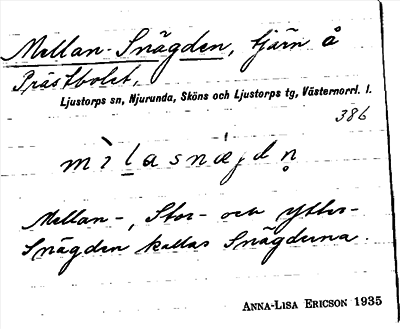 Mellan-Snägden, tjärn å
Prästbolet,
Ljustorps sn, Njurunda, Sköns och Ljustorps tg, Västernorrl. l.
386
Mellan-, Stor- och Ytter-
Snägden kallas Snägderna.
ANNA-LISA ERICSON 1935